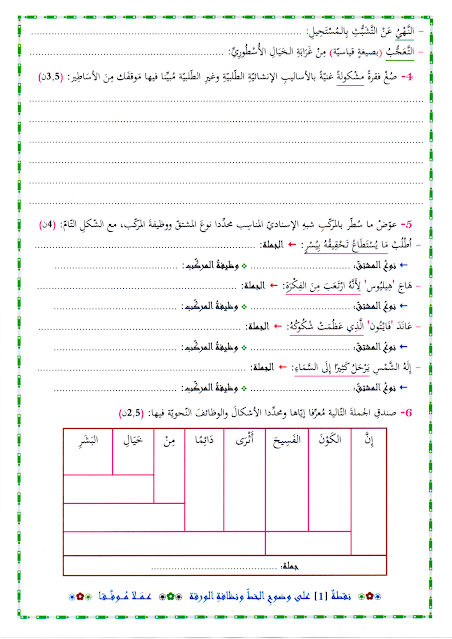 – النَّهْيُ عَنْ التَّشَبُّثِ بِالمُسْتَحِيلِ: ........
– التَّعَجُّبُ (بصيغةٍ قياسيّة) مِنْ غَرَابَةِ الخَيَالِ الأُسْطُورِيِّ: ........
4- صُغْ فقرةً مشكولةً غنيّةً بالأساليبِ الإنشائيّةِ الطّلبيّةِ وغيرِ الطّلبيّة مُبيِّنا فيها مَوقفَكَ مِنَ الأَسَاطِيرِ: (3,5ن)
........
........
........
........
........
........
5- عوّضْ ما سُطّر بالمركّبِ شبهِ الإسناديّ المناسبِ محدّدا نوعَ المشتقّ ووظيفةَ المركّبِ، مع الشّكلِ التّامّ: (4ن)
– اُطْلُبْ مَا يُسْتَطَاعُ تَحْقِيقُهُ بِيُسْرٍ: ← الجملة: ........
← نوعُ المشتقّ: ........ ❖ وظيفةُ المركّبِ: ........
– هَاجَ 'هِيلْيُوس' لِأَنَّهُ ارْتَعَبَ مِنَ الفِكْرَةِ: ← الجملة: ........
← نوعُ المشتقّ: ........ ❖ وظيفةُ المركّبِ: ........
– عَانَدَ 'فَايْتُون' الَّذِي عَظُمَتْ شُكُوكُهُ: ← الجملة: ........
← نوعُ المشتقّ: ........ ❖ وظيفةُ المركّبِ: ........
– إِلَهُ الشَّمْسِ يَرْحَلُ كَثِيرًا إِلَى السَّمَاءِ: ← الجملة: ........
← نوعُ المشتقّ: ........ ❖ وظيفةُ المركّبِ: ........
6- صندقِ الجملةَ التّالية مُعرِّفا إيّاها ومحدِّدا الأشكالَ والوظائفَ النّحويّة فيها: (2,5ن)
إِنَّ الكَوْنَ الفَسِيحَ أَثْرَى دَائِمًا مِنْ خَيَالِ البَشَرِ
جملة: ........
نقطةُ [1] على وضوحِ الخطّ ونظافةِ الورقة عَمَلا مُوفَّقا